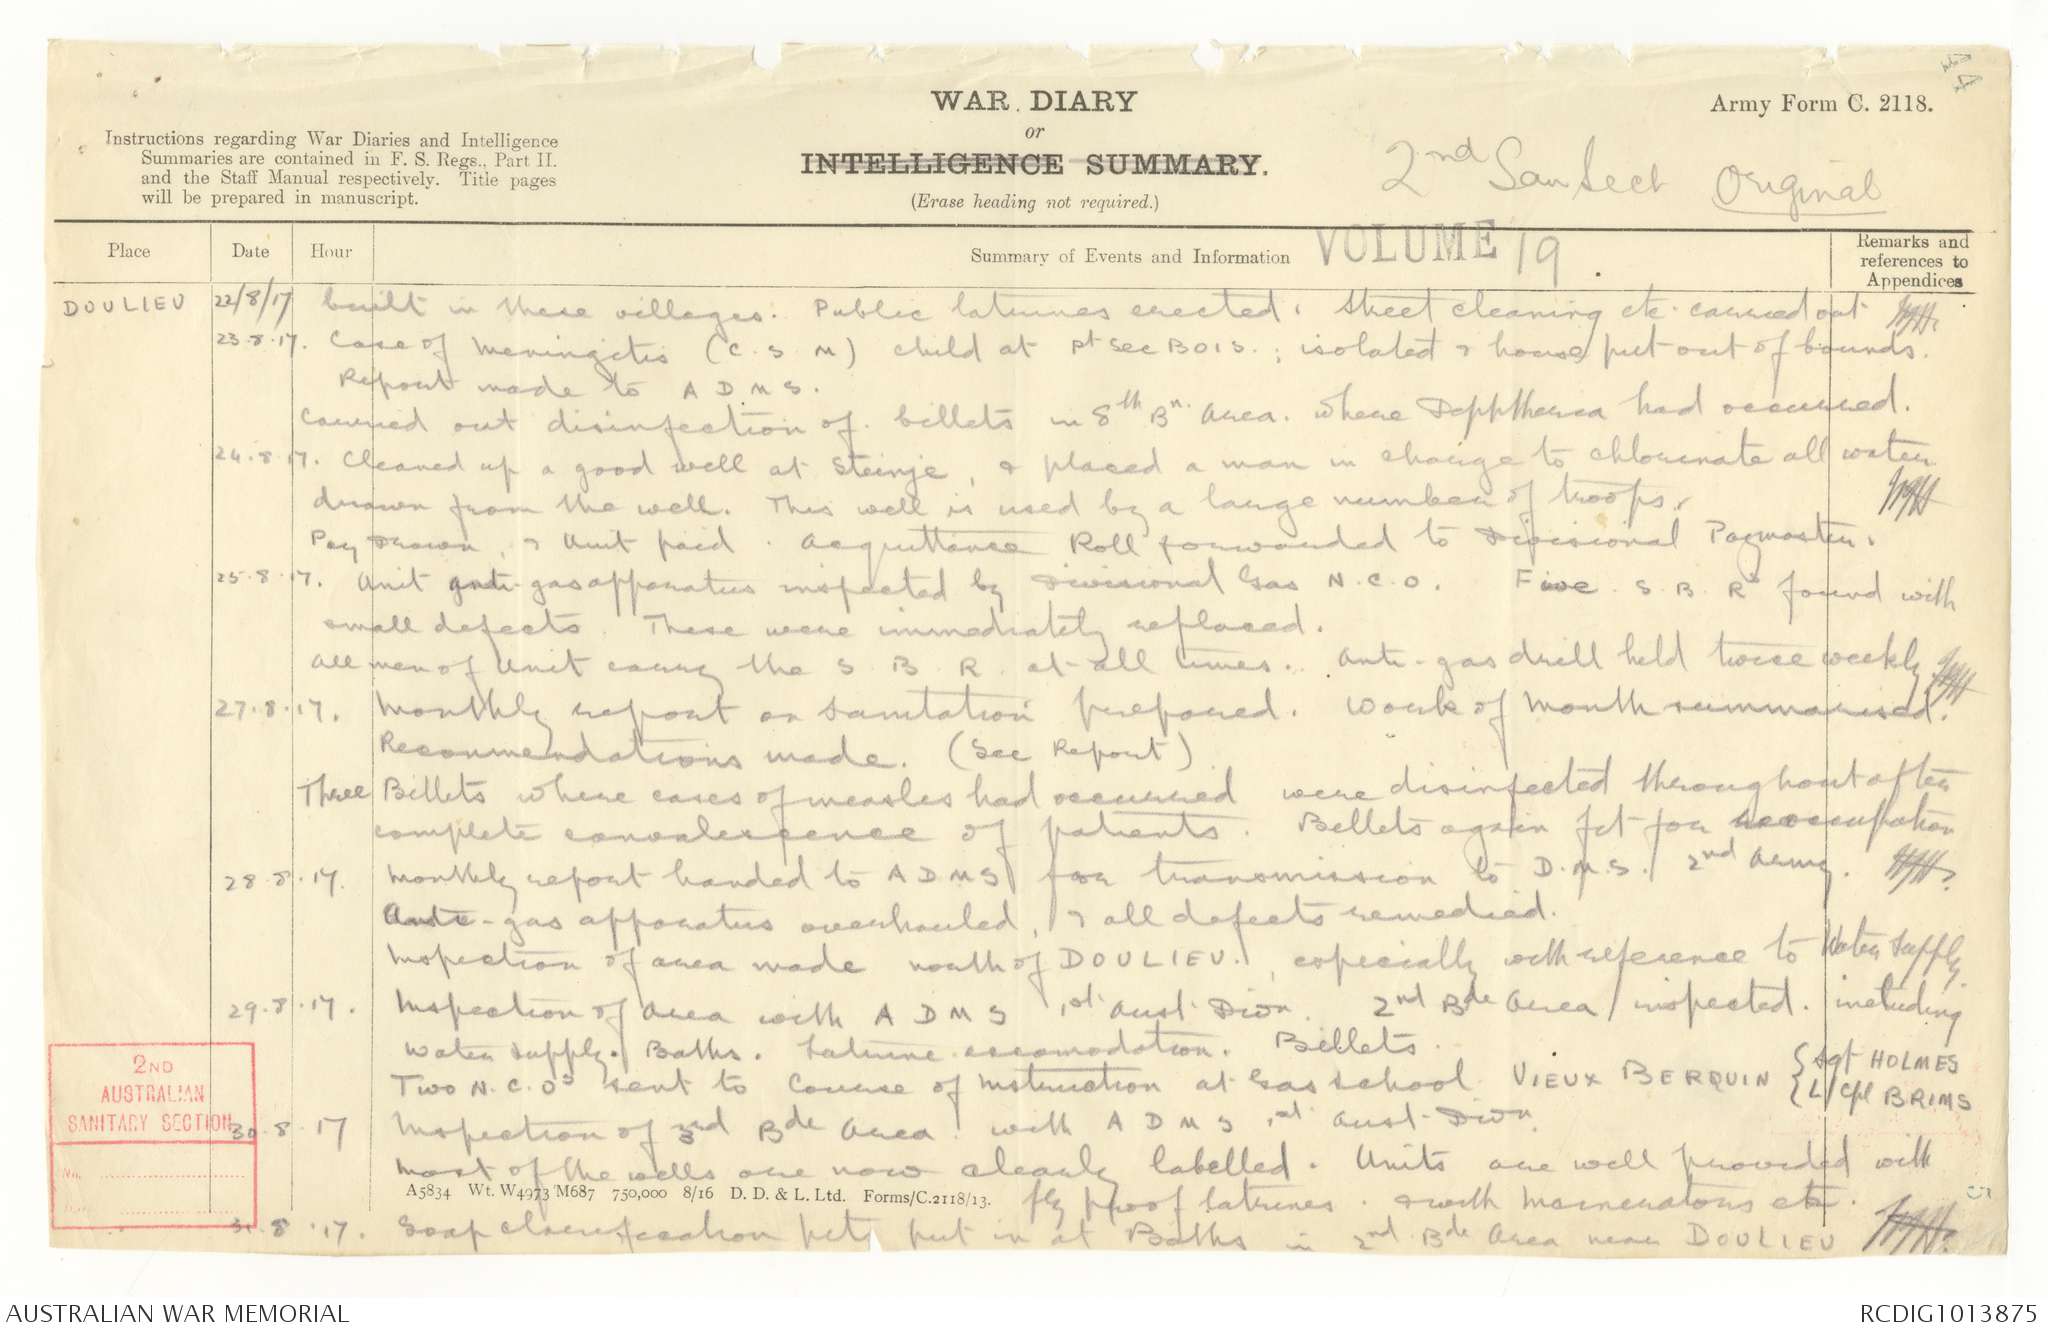 WAR DIARY
or
INTELLIGENCE SUMMARY.
(Erase heading not required.)
Army Form C. 2118.
Instructions regarding War Diaries and Intelligence
Summaries are contained in F. S. Regs., Part II.
and the Staff Manual respectively. Title pages
will be prepared in manuscript.
2nd San Sect Original
VOLUME 19
Place Date Hour Summary of Events and Information Remarks and references to Appendices
DOULIEU 22/8/17 built in these villages. Public latrines erected, street cleaning etc. carried out
23.8.17. Case of Meningitis (C.S.M) child at Pt Sec BOIS.; isolated & house put out of bounds.
Report made to A D M S.
Carried out disinfection of billets in 8th Bn. area. where Dipptherea had occurred.
24.8.17. Cleaned up a good well at Steinje, & placed a man in charge to chlorinate all water
drawn from the well. This well is used by a large number of troops.
Pay drawn, & Unit paid. Acquittance Roll forwarded to Divisional Paymaster.
25.8.17. Unit anti-gas apparatus inspected by Divisional Gas N.C.O. Five S.B.Rs found with
small defects. These were immediately replaced.
All men of Unit carry the S.B.R. at all times. Anti-gas drill held twice weekly
27.8.17. Monthly report on Sanitation prepared. Work of month summarised.
Recommendations made. (See Report)
Three Billets where cases of measles had occurred were disinfected throughout after
complete convalescence of patients. Billets again fit for reoccupation
28.8.17. Monthly report handed to A D M S for transmission to D.M.S. 2nd Army.
Anti-gas apparatus overhauled, & all defects remedied.
Inspection of area made north of DOULIEU., especially with reference to Water Supply.
29.8.17. Inspection of Area with A D M S 1st Aust Divn. 2nd Bde Area inspected. including
Water supply. Baths. Latrine accomodation. Billets.
Two N.C.Os sent to Course of Instruction at Gas School VIEUX BERQUIN { Sgt HOLMES
{ L/Cpl BRIMS
30.8.17 Inspection of 3rd Bde Area with A D M S 1st Aust Divn.
Most of the wells are now clearly labelled. Units are well provided with
fly proof latrines. & with Incinerators etc.
31.8.17. Soap clarification pits put in at Baths in 2nd Bde Area near DOULIEU
2ND
AUSTRALIAN
SANITARY SECTION
No.
A5834 Wt. W4973 M687 750,000 8/16 D. D. & L. Ltd. Forms/C.2118/13.
AUSTRALIAN WAR MEMORIAL
RCDIG1013875